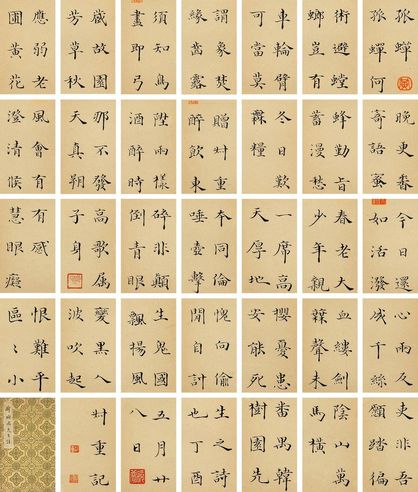 孤蟬
孤蟬何
術避螳
螂豈有
車輪臂
可當莫
謂象焚
緣齒露
須知鳥
盡即弓
感故園
芳草秋
應弱老
圃黃花
晚更香
寄語蜜
蜂勤旨
蓄漫愁
冬日歎
糧
贈艸重
醉飲東
陞雨樣
酒醉時
那不發
天真朔
風會有
澄清候
今日還
如活潑
春老大
少年親
一席高
天厚地
本同倫
唾壺擊
碎非顛
倒青眼
高歌屬
子身
有感
慧眼癡
心雨及
成千絲
血縷劍
聲未
櫻憂患
安能死
愧向偷
閒自計
生鬼國
飄揚風
變黑入
波吹起
恨難平
區〻小
願踏遍
非吾
陰山萬
馬橫
番禺韓
樹園先
生之詩
也丁酉
五月廿
八日
艸重記